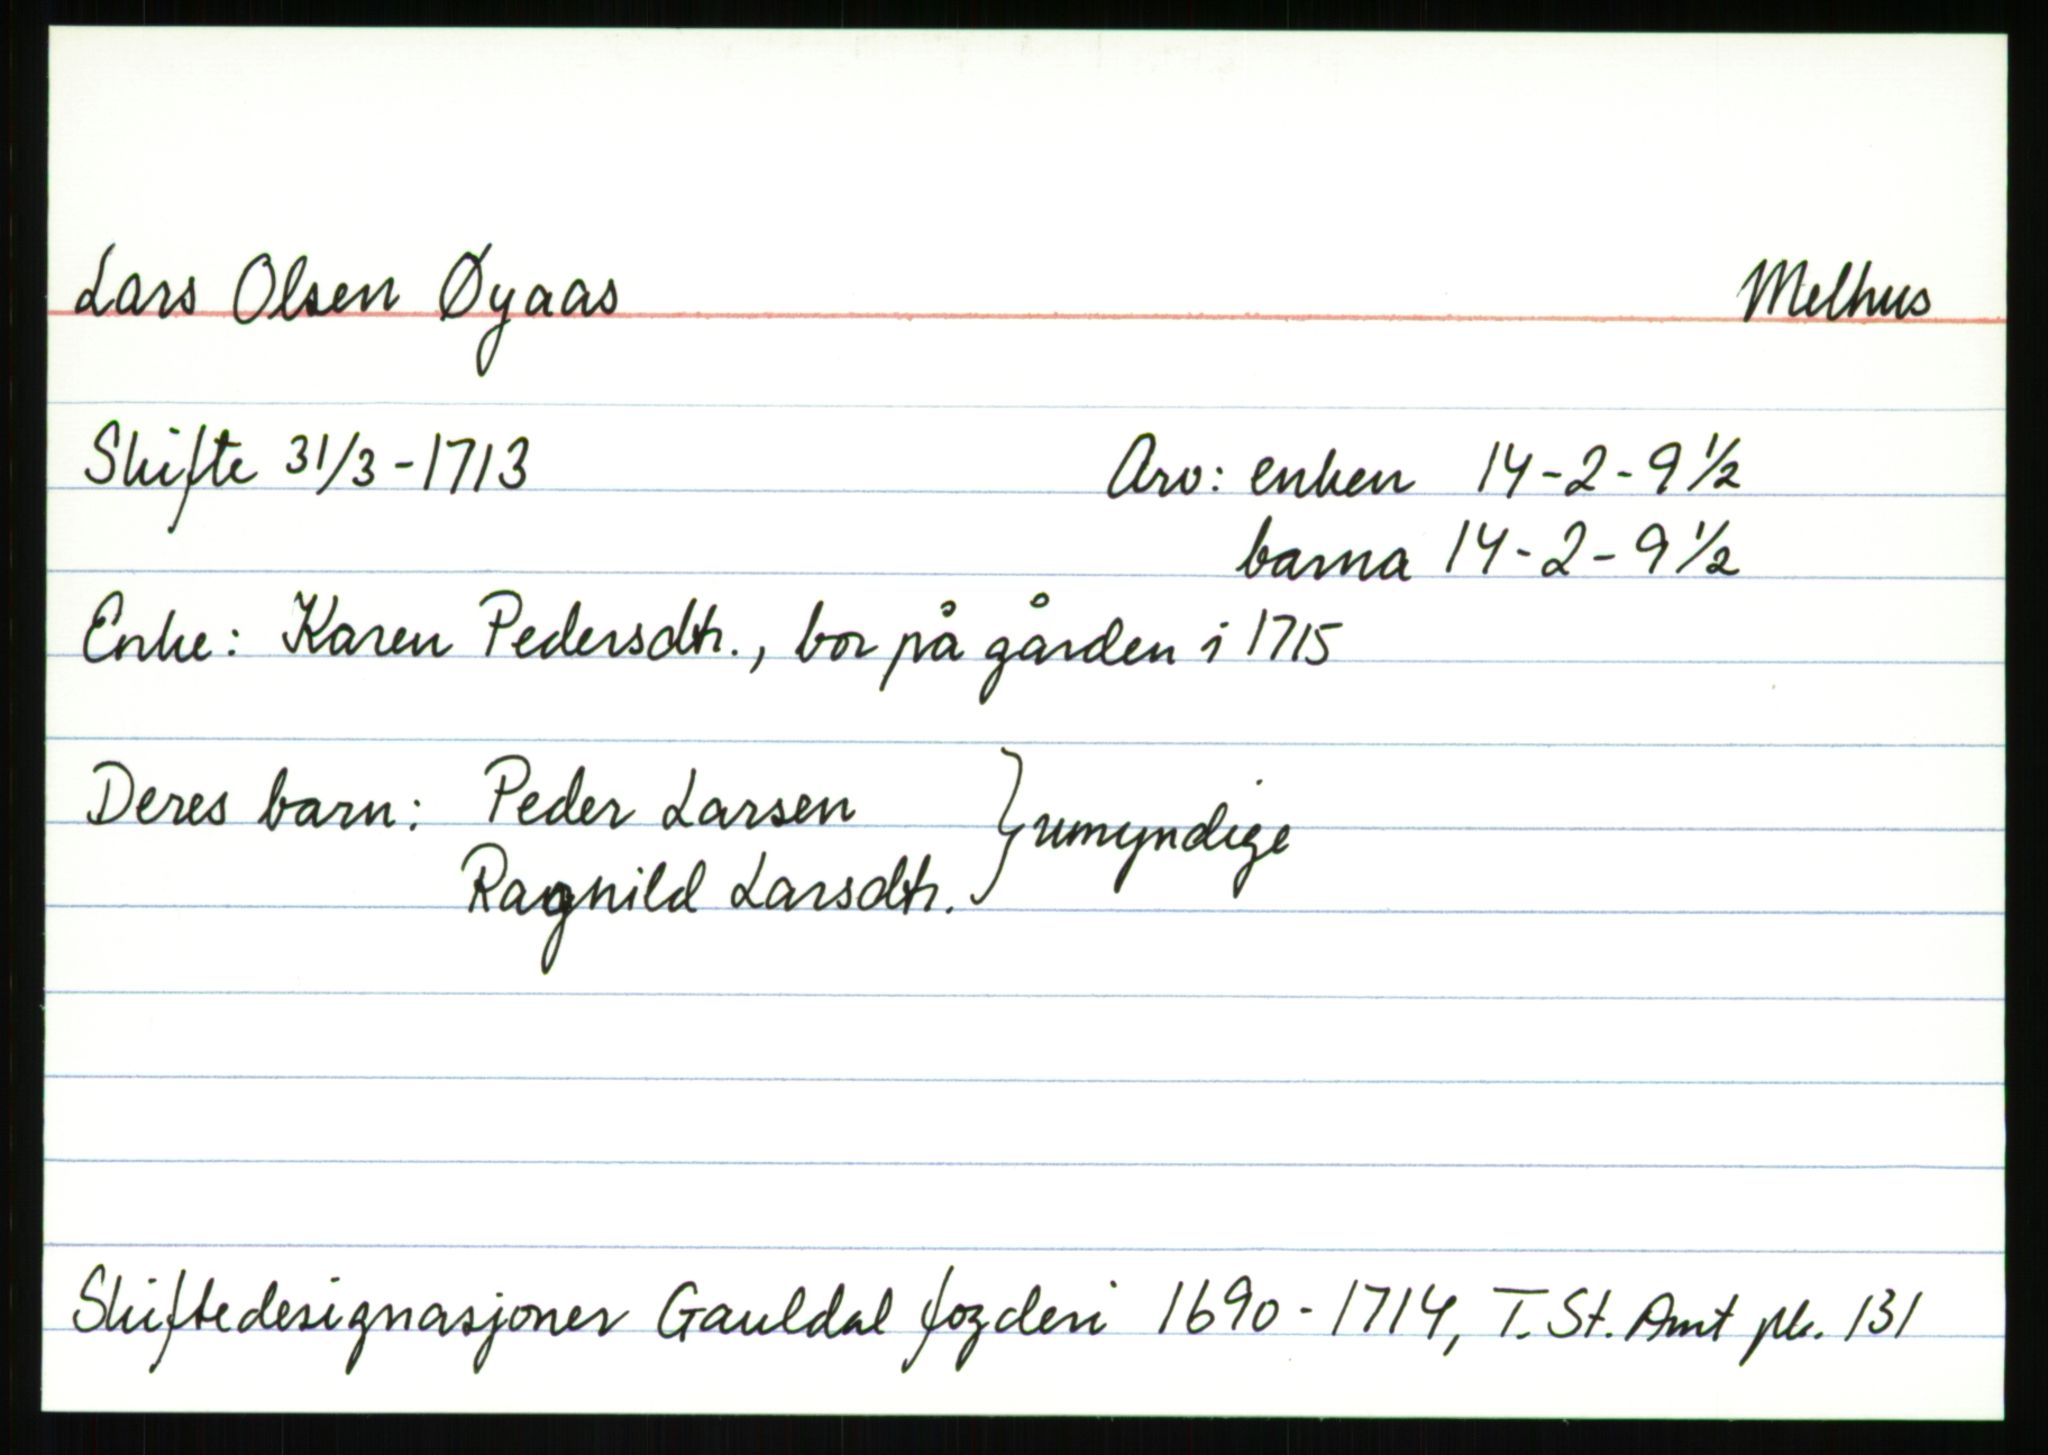 Lars Olsen Øyaas Melhus
Skifte 31/3-1713 Arv: enken 14-2-9 1/2
barna 14-2-9 1/2
Enke: Karen Pedersdtr., bor på gården i 1715
Deres barn: Peder Larsen } umyndige
Ragnild Larsdtr.
Skiftedesignasjoner Gauldal fogderi 1690-1714, T. St. Amt pk. 131